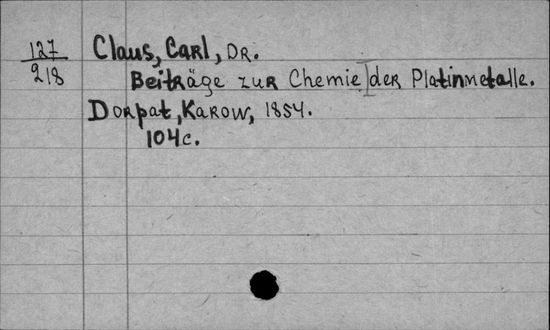 127
218
Claus, Carl, Dr.
Beiträge zur Chemie der Platinmetalle.
Dorpat, Karow, 1854.
104c.